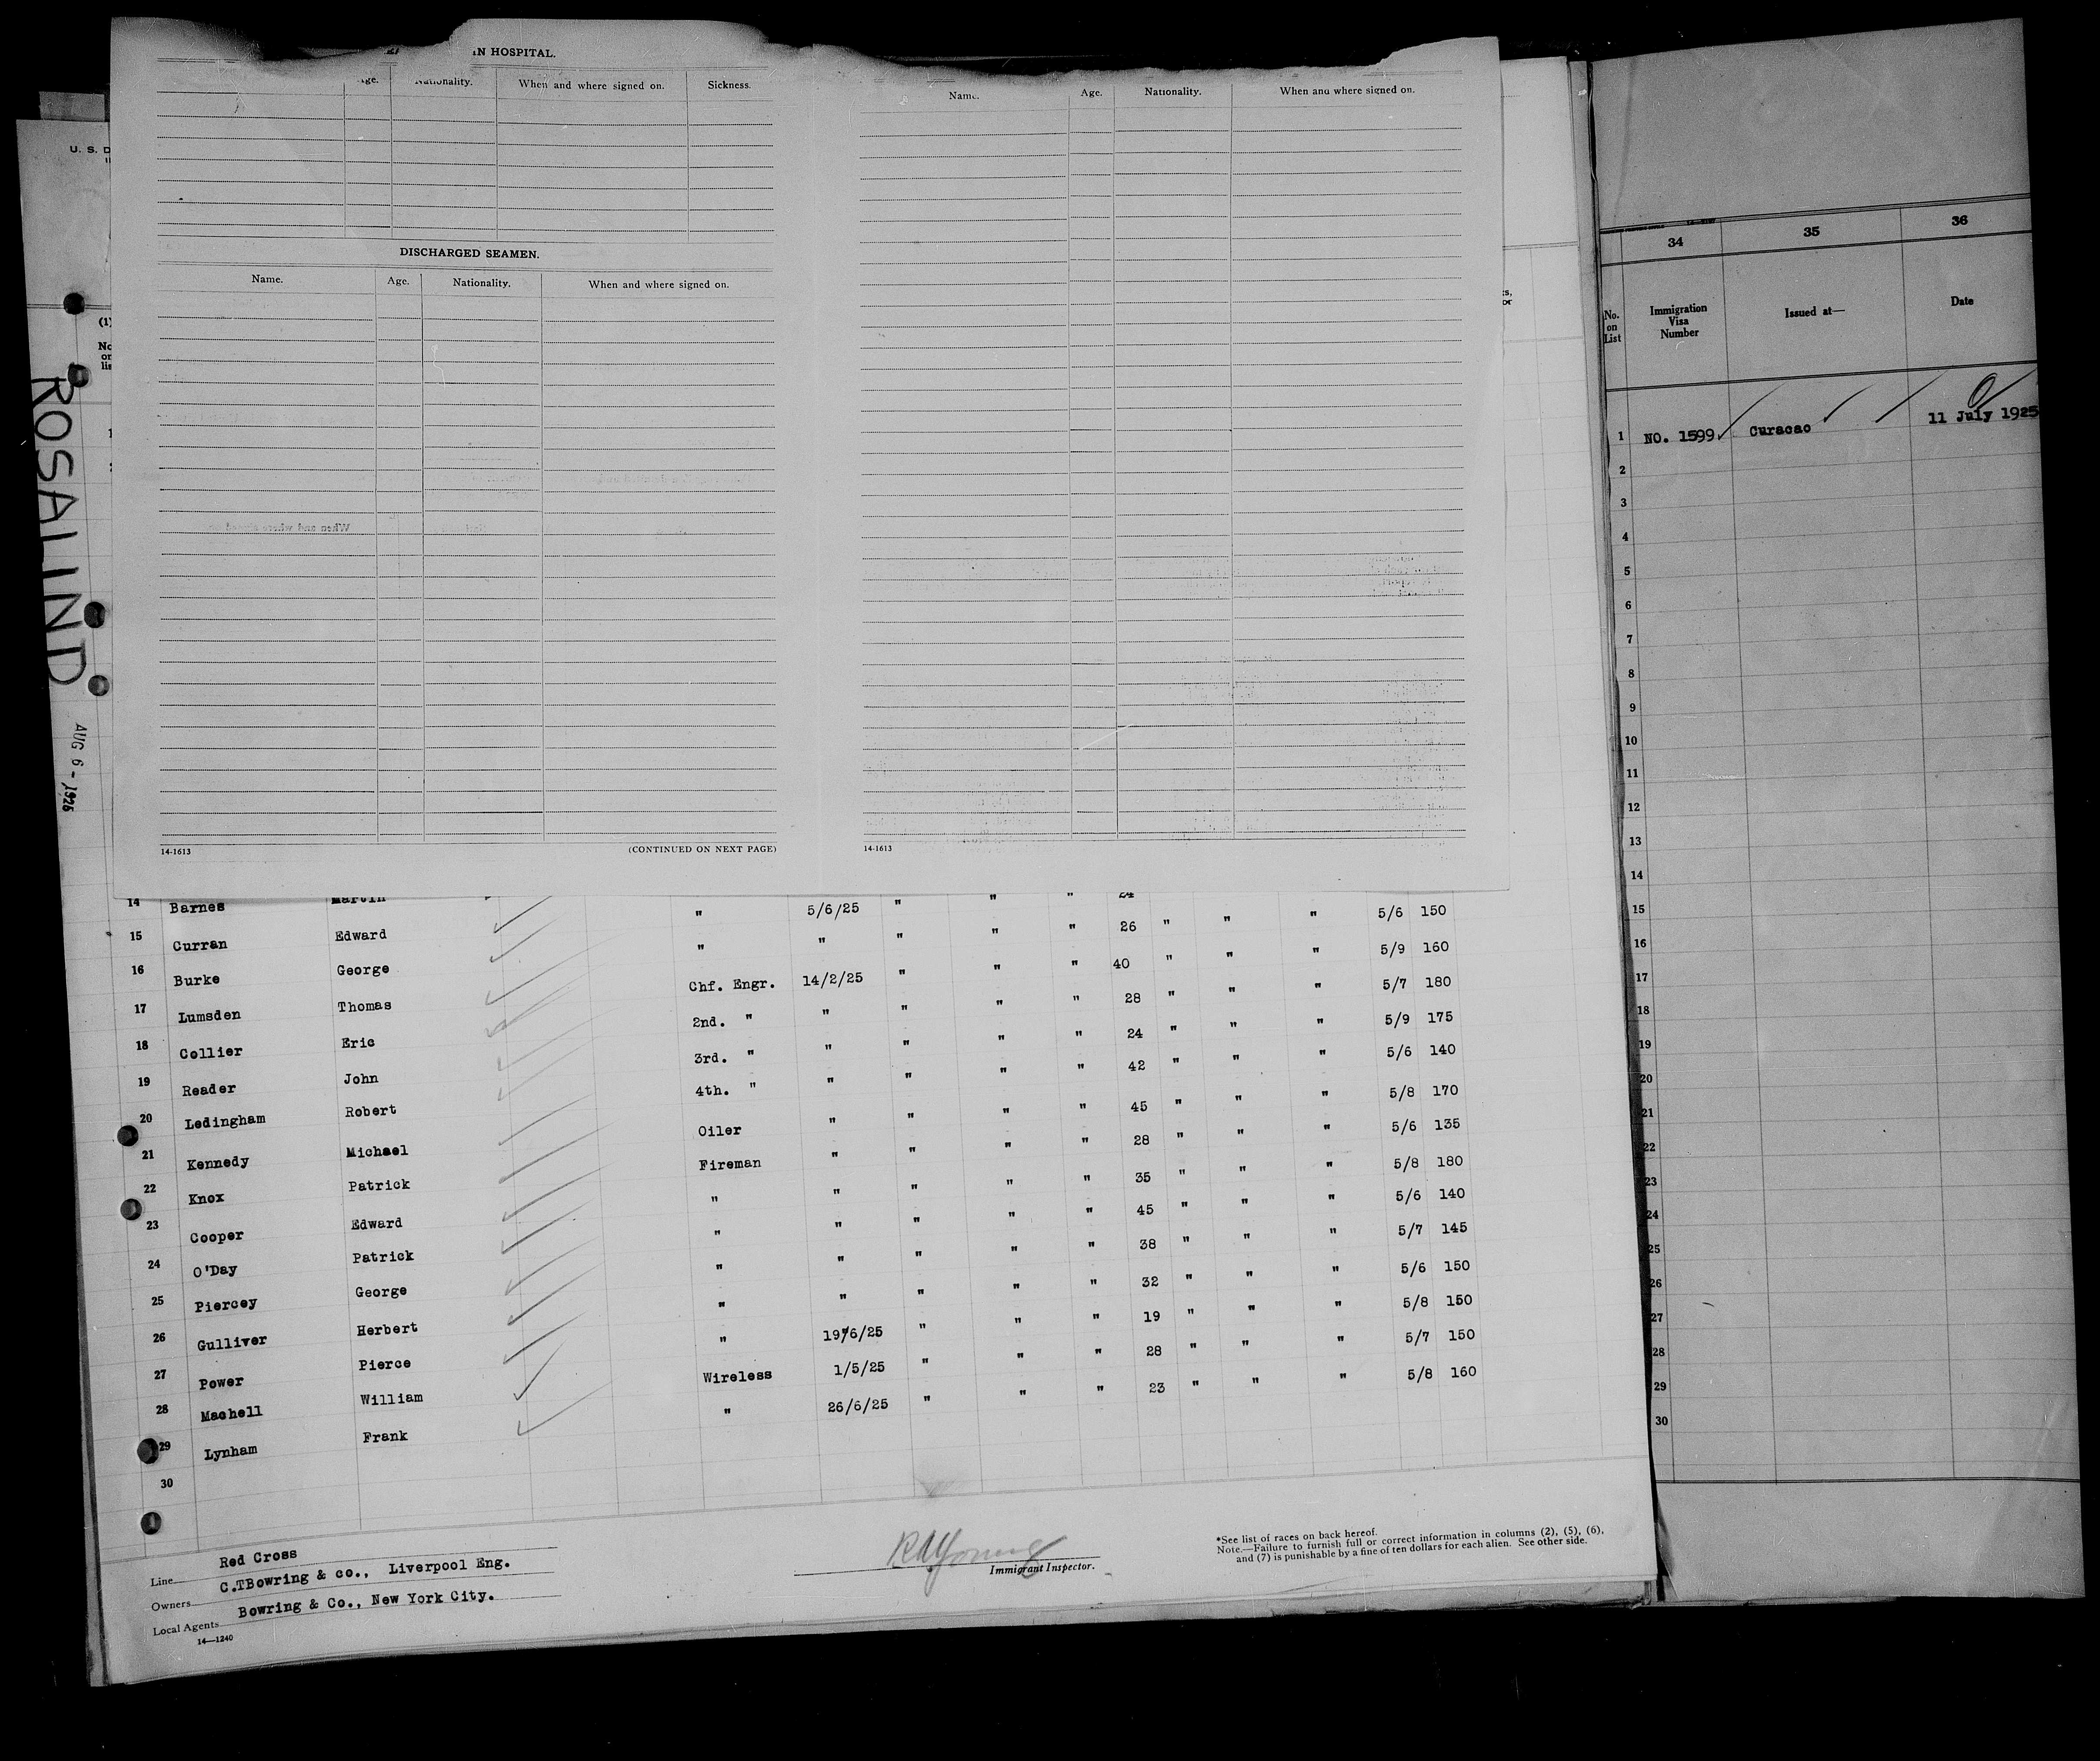 IN HOSPITAL.
Age. Nationality. When and where signed on. Sickness.
Name. Age. Nationality. When and where signed on.
DISCHARGED SEAMEN.
Name. Age. Nationality. When and where signed on.
14-1613 (CONTINUED ON NEXT PAGE)
14-1613
U. S. D
(1)
No
on
lis
ROSALIND
AUG 6 - 1925
14 Barnes Martin
15 Curran Edward " 5/6/25 " " " 24
16 Burke George " " " " " 26 " " " 5/6 150
17 Lumsden Thomas Chf. Engr. 14/2/25 " " " 40 " " " 5/9 160
18 Collier Eric 2nd. " " " " " 28 " " " 5/7 180
19 Reader John 3rd. " " " " " 24 " " " 5/9 175
20 Ledingham Robert 4th. " " " " " 42 " " " 5/6 140
21 Kennedy Michael Oiler " " " " 45 " " " 5/8 170
22 Knox Patrick Fireman " " " " 28 " " " 5/6 135
23 Cooper Edward " " " " " 35 " " " 5/8 180
24 O'Day Patrick " " " " " 45 " " " 5/6 140
25 Piercey George " " " " " 38 " " " 5/7 145
26 Gulliver Herbert " " " " " 32 " " " 5/6 150
27 Power Pierce " 19/6/25 " " " 19 " " " 5/8 150
28 Machell William Wireless 1/5/25 " " " 28 " " " 5/7 150
29 Lynham Frank " 26/6/25 " " " 23 " " " 5/8 160
30
Line Red Cross
Owners C.TBowring & co., Liverpool Eng.
Local Agents Bowring & Co., New York City.
14—1240
RM Young
Immigrant Inspector.
*See list of races on back hereof.
Note.—Failure to furnish full or correct information in columns (2), (5), (6),
and (7) is punishable by a fine of ten dollars for each alien. See other side.
34 35 36
No. on List Immigration Visa Number Issued at— Date
1 NO. 1599 Curacao 11 July 1925
2
3
4
5
6
7
8
9
10
11
12
13
14
15
16
17
18
19
20
21
22
23
24
25
26
27
28
29
30